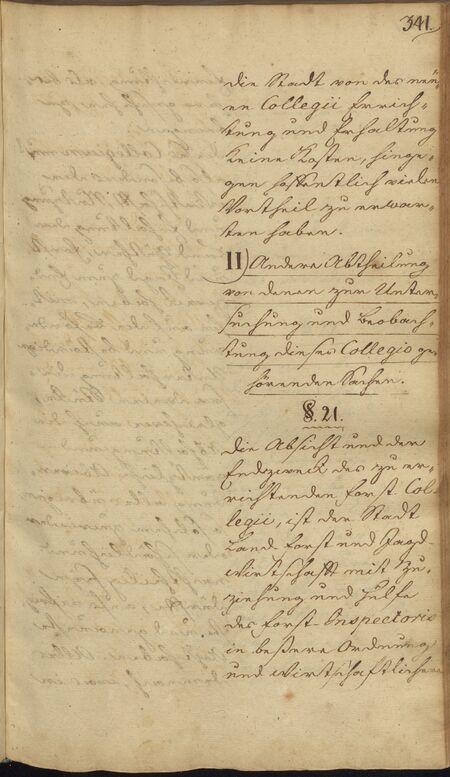 341.
die Stadt von des neu-
en Collegii Errich-
tung und Erhaltung
keine Kosten, hinge-
gen hoffentlich vielen
Vortheil zu erwar-
ten haben.
II) Andere Abtheilung
von denen zur Unter-
suchung und Beobach-
tung dieses Collegio ge-
hörenden Sachen.
§. 21.
Die Absicht und der
Endzweck des zu er-
richtenden Forst-Col-
legii, ist der Stadt
Land Forst und Jagd
Wirtschafft mit Zu-
ziehung und Hülfe
des Forst-Inspectoris
in beßere Ordnung
und wirtschaftlichere